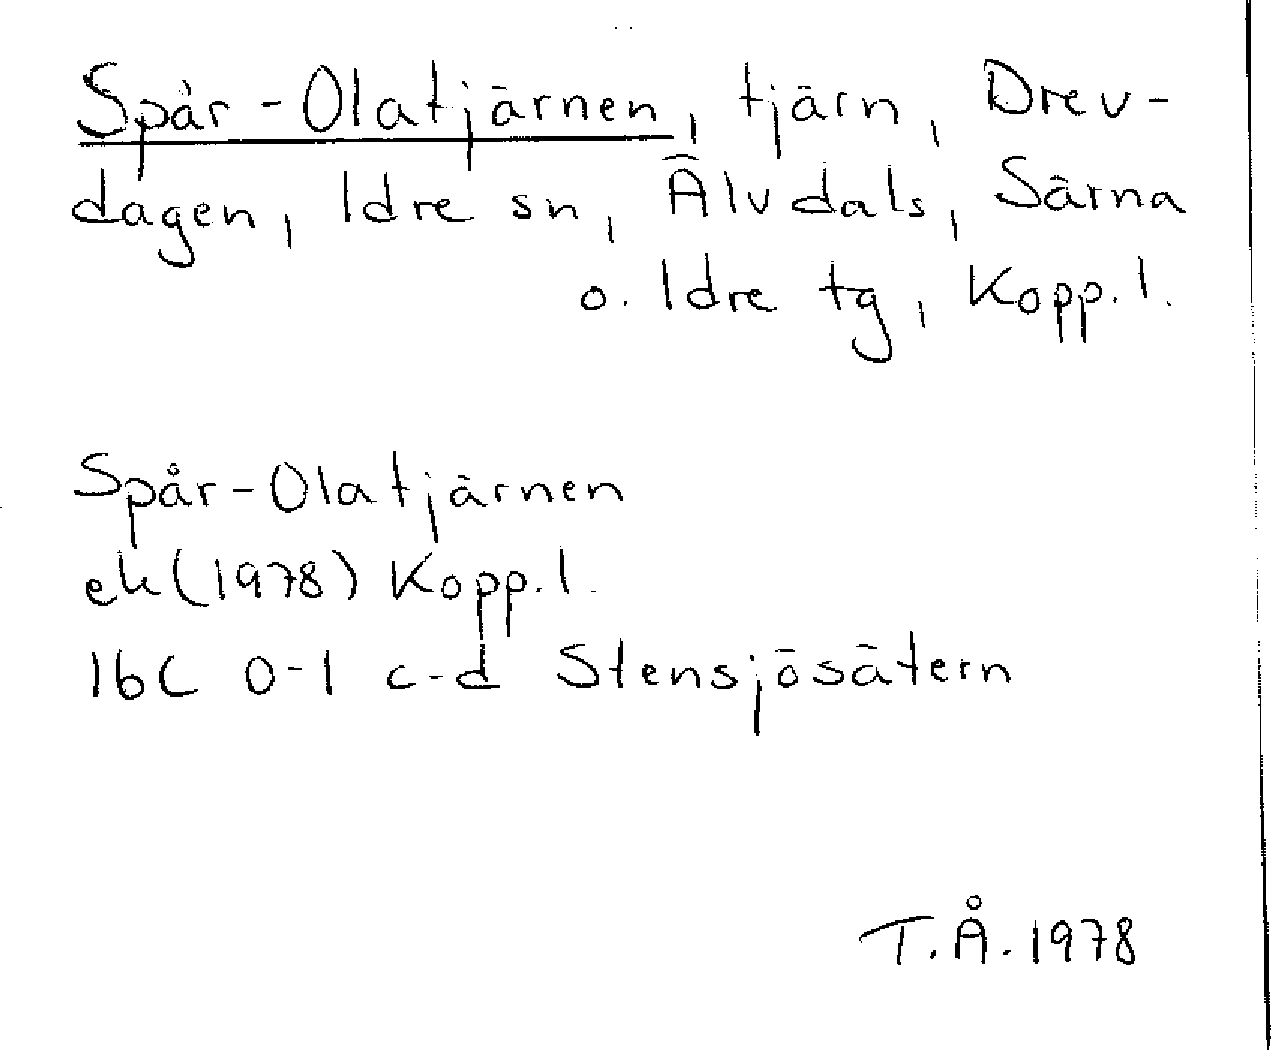 Spår-Olatjärnen, tjärn, Drev-
dagen, Idre sn, Älvdals, Särna
o. Idre tg, Kopp. l.
Spår-Olatjärnen
ek (1978) Kopp. l.
16C 0-1 c-d Stensjösätern
T.Å. 1978